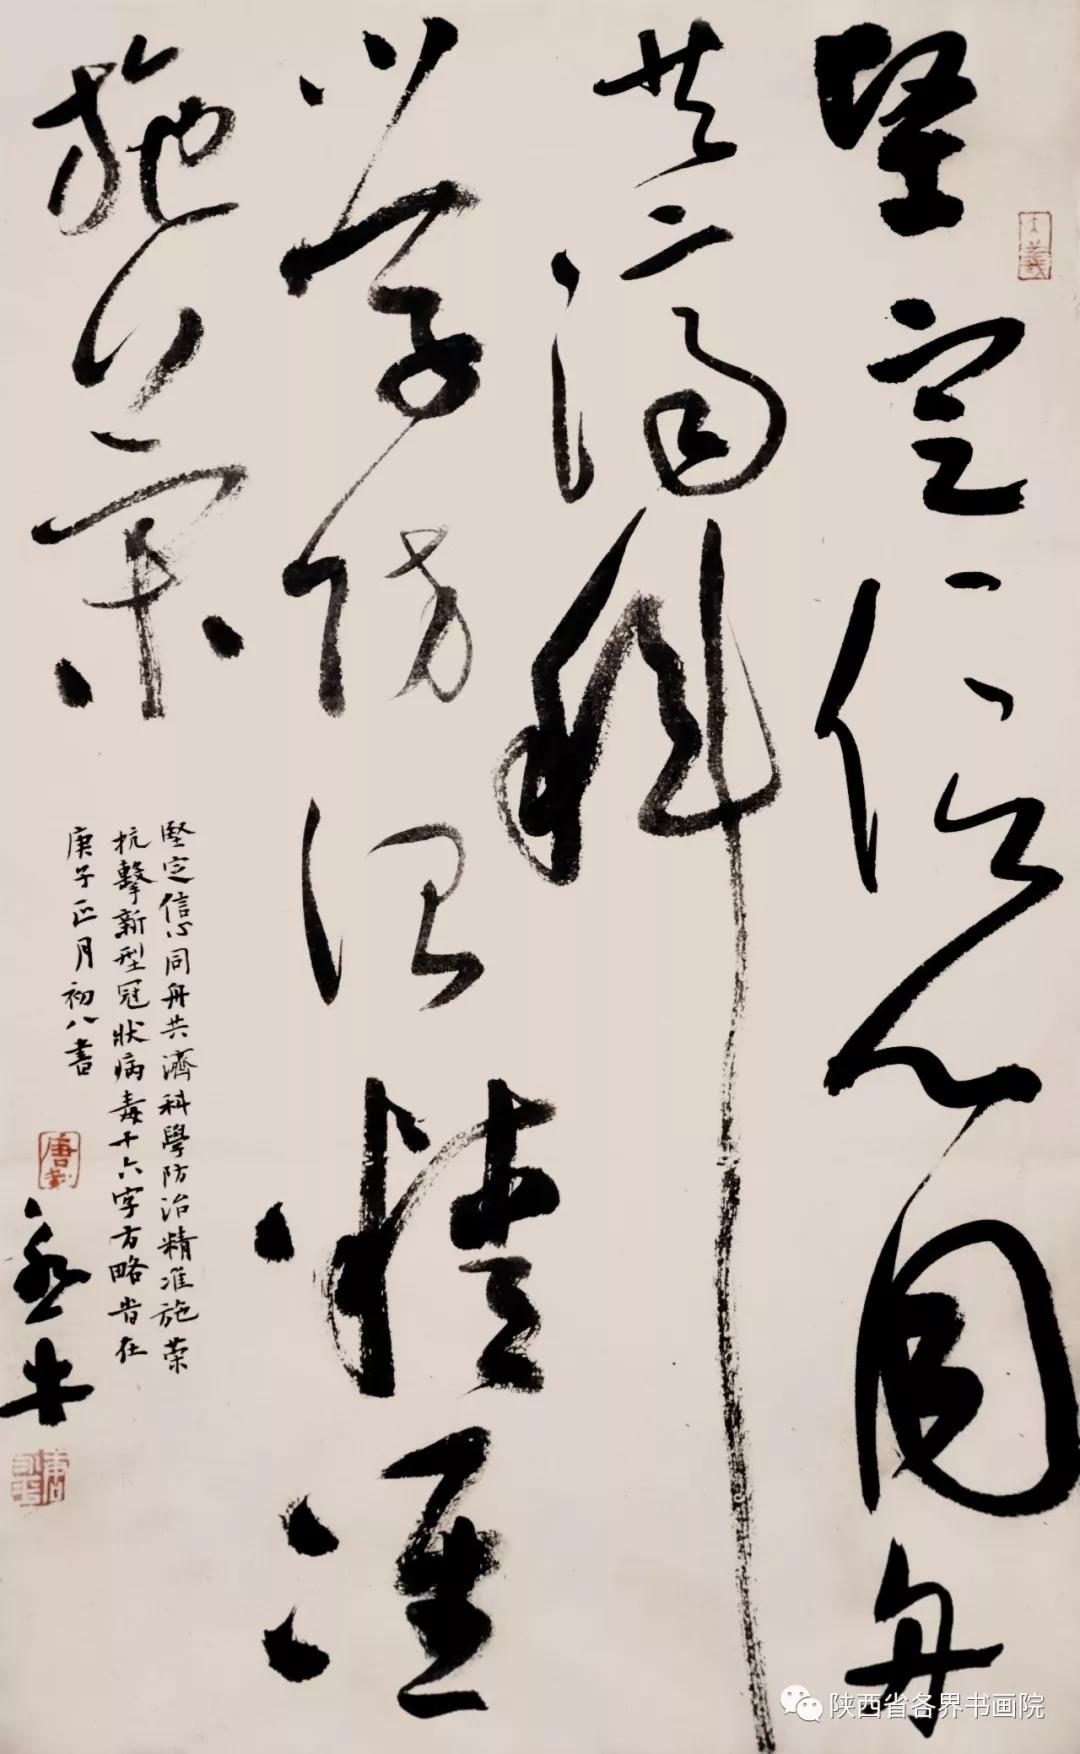 坚定信心同舟
共济科
学防治精准
施策
堅定信心同舟共濟科學防治精准施策
抗擊新型冠狀病毒十六字方略岁在
庚子正月初八書
陕西省各界书画院